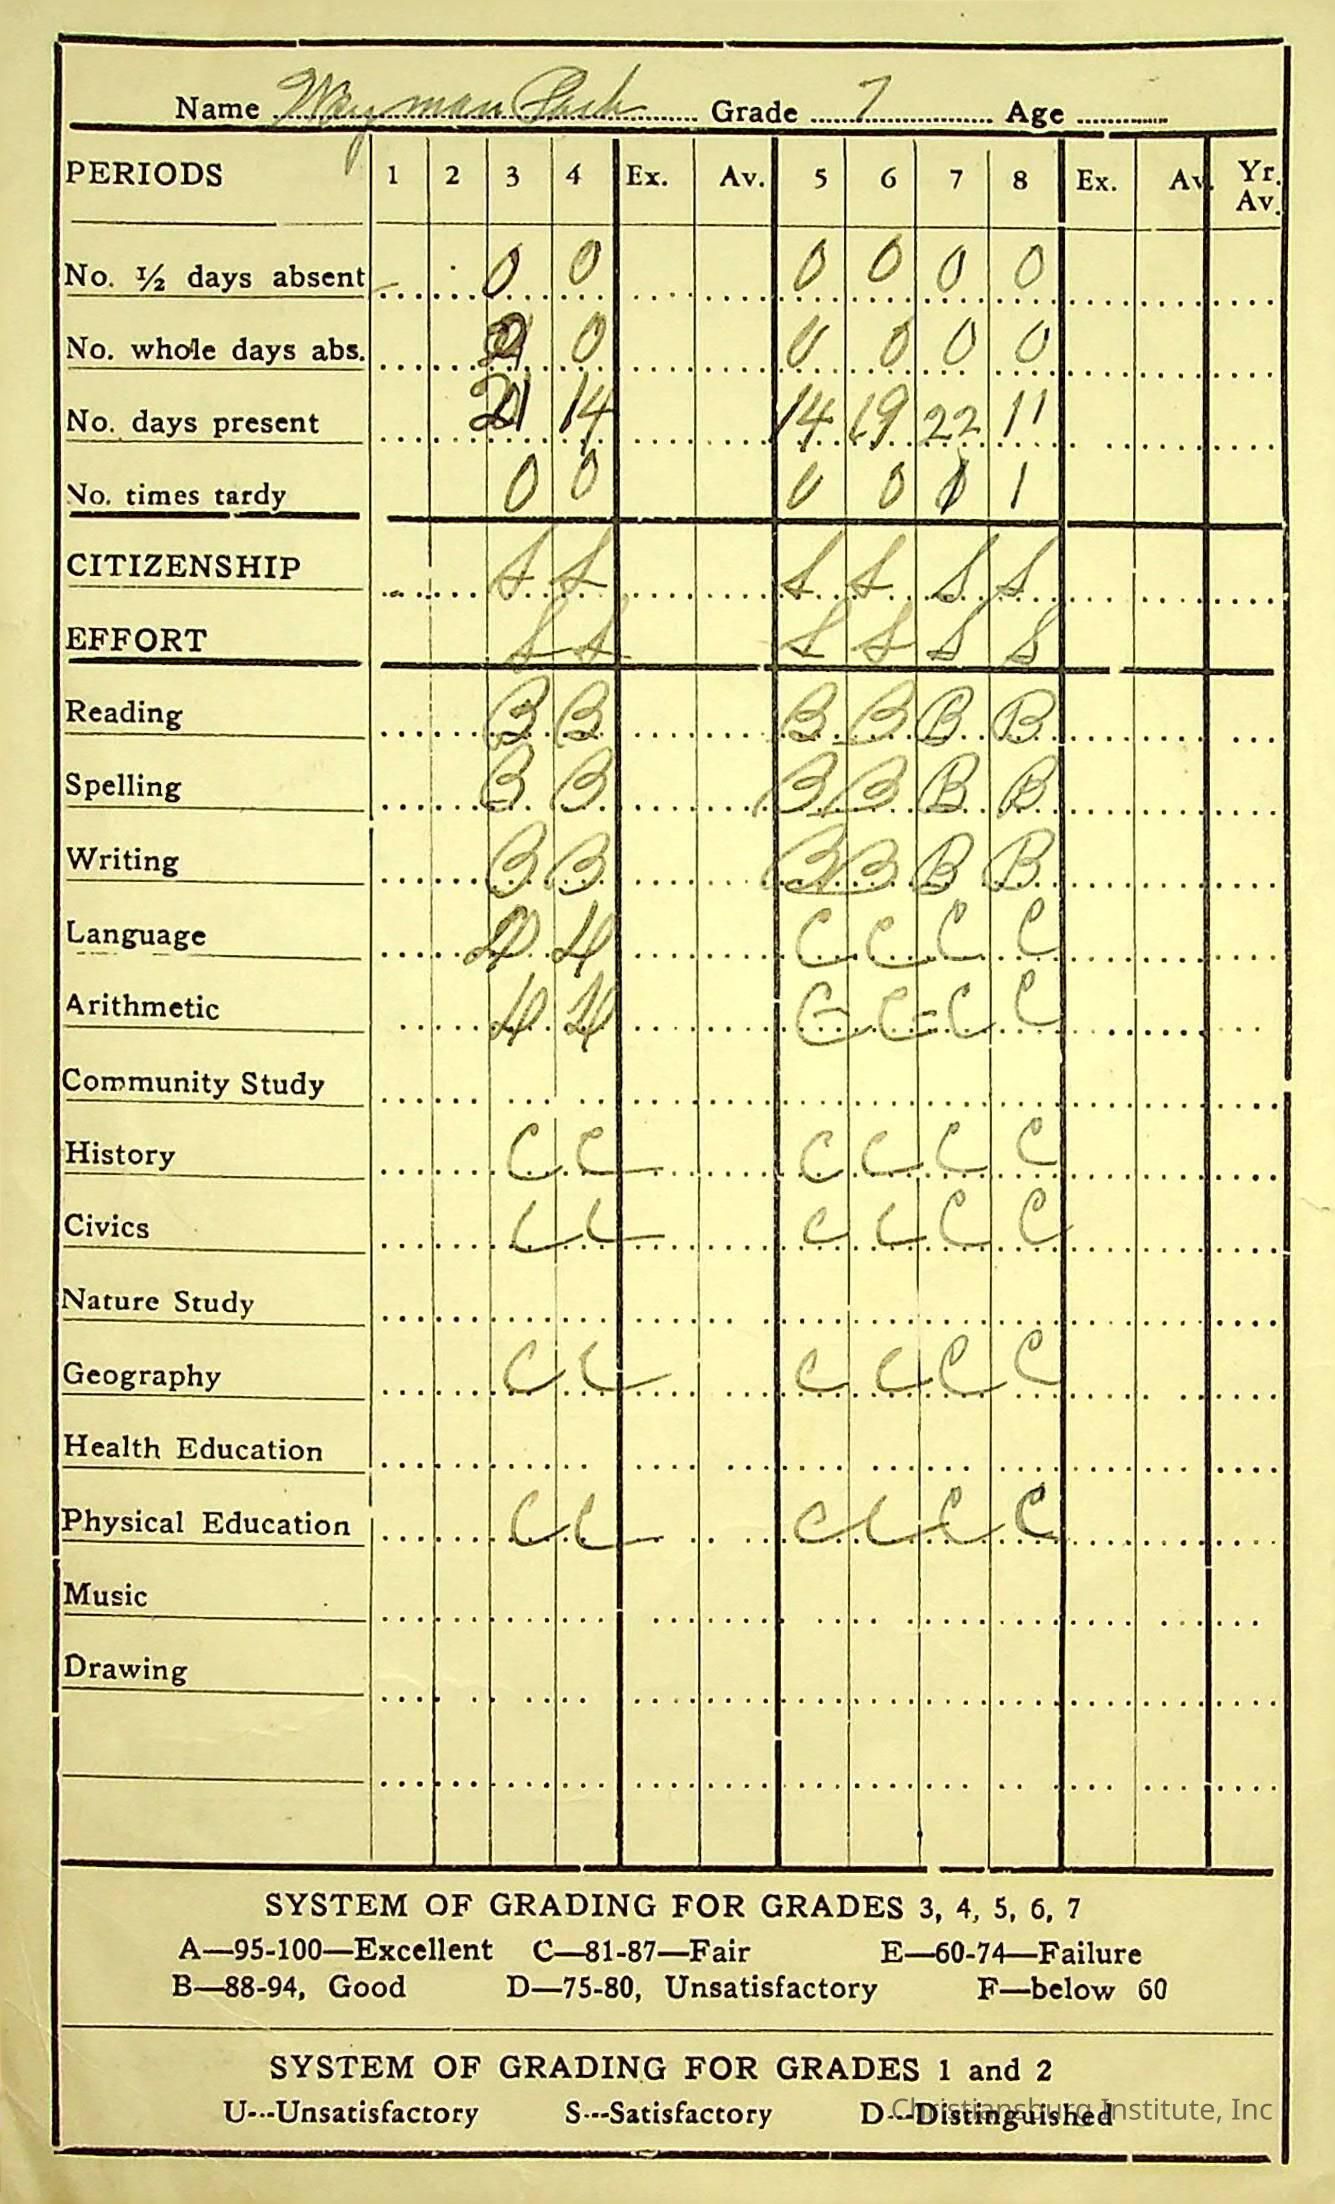 Name Wayman Pack Grade 7 Age
PERIODS 1 2 3 4 Ex. Av. 5 6 7 8 Ex. Av. Yr. Av.
No. ½ days absent 0 0 0 0 0 0
No. whole days abs. 0 0 0 0 0
No. days present 21 14 14 19 22 11
No. times tardy 0 0 0 0 1
CITIZENSHIP S S S S S S
EFFORT S S S S S S
Reading B B B B B B
Spelling B B B B B B
Writing B B B B B B
Language C C C C
Arithmetic C- C- C C
Community Study
History C C C C C C
Civics C C C C C C
Nature Study
Geography C C C C C C
Health Education
Physical Education C C C C C C
Music
Drawing
SYSTEM OF GRADING FOR GRADES 3, 4, 5, 6, 7
A—95-100—Excellent C—81-87—Fair E—60-74—Failure
B—88-94, Good D—75-80, Unsatisfactory F—below 60
SYSTEM OF GRADING FOR GRADES 1 and 2
U---Unsatisfactory S---Satisfactory D---Distinguished
Christiansburg Institute, Inc